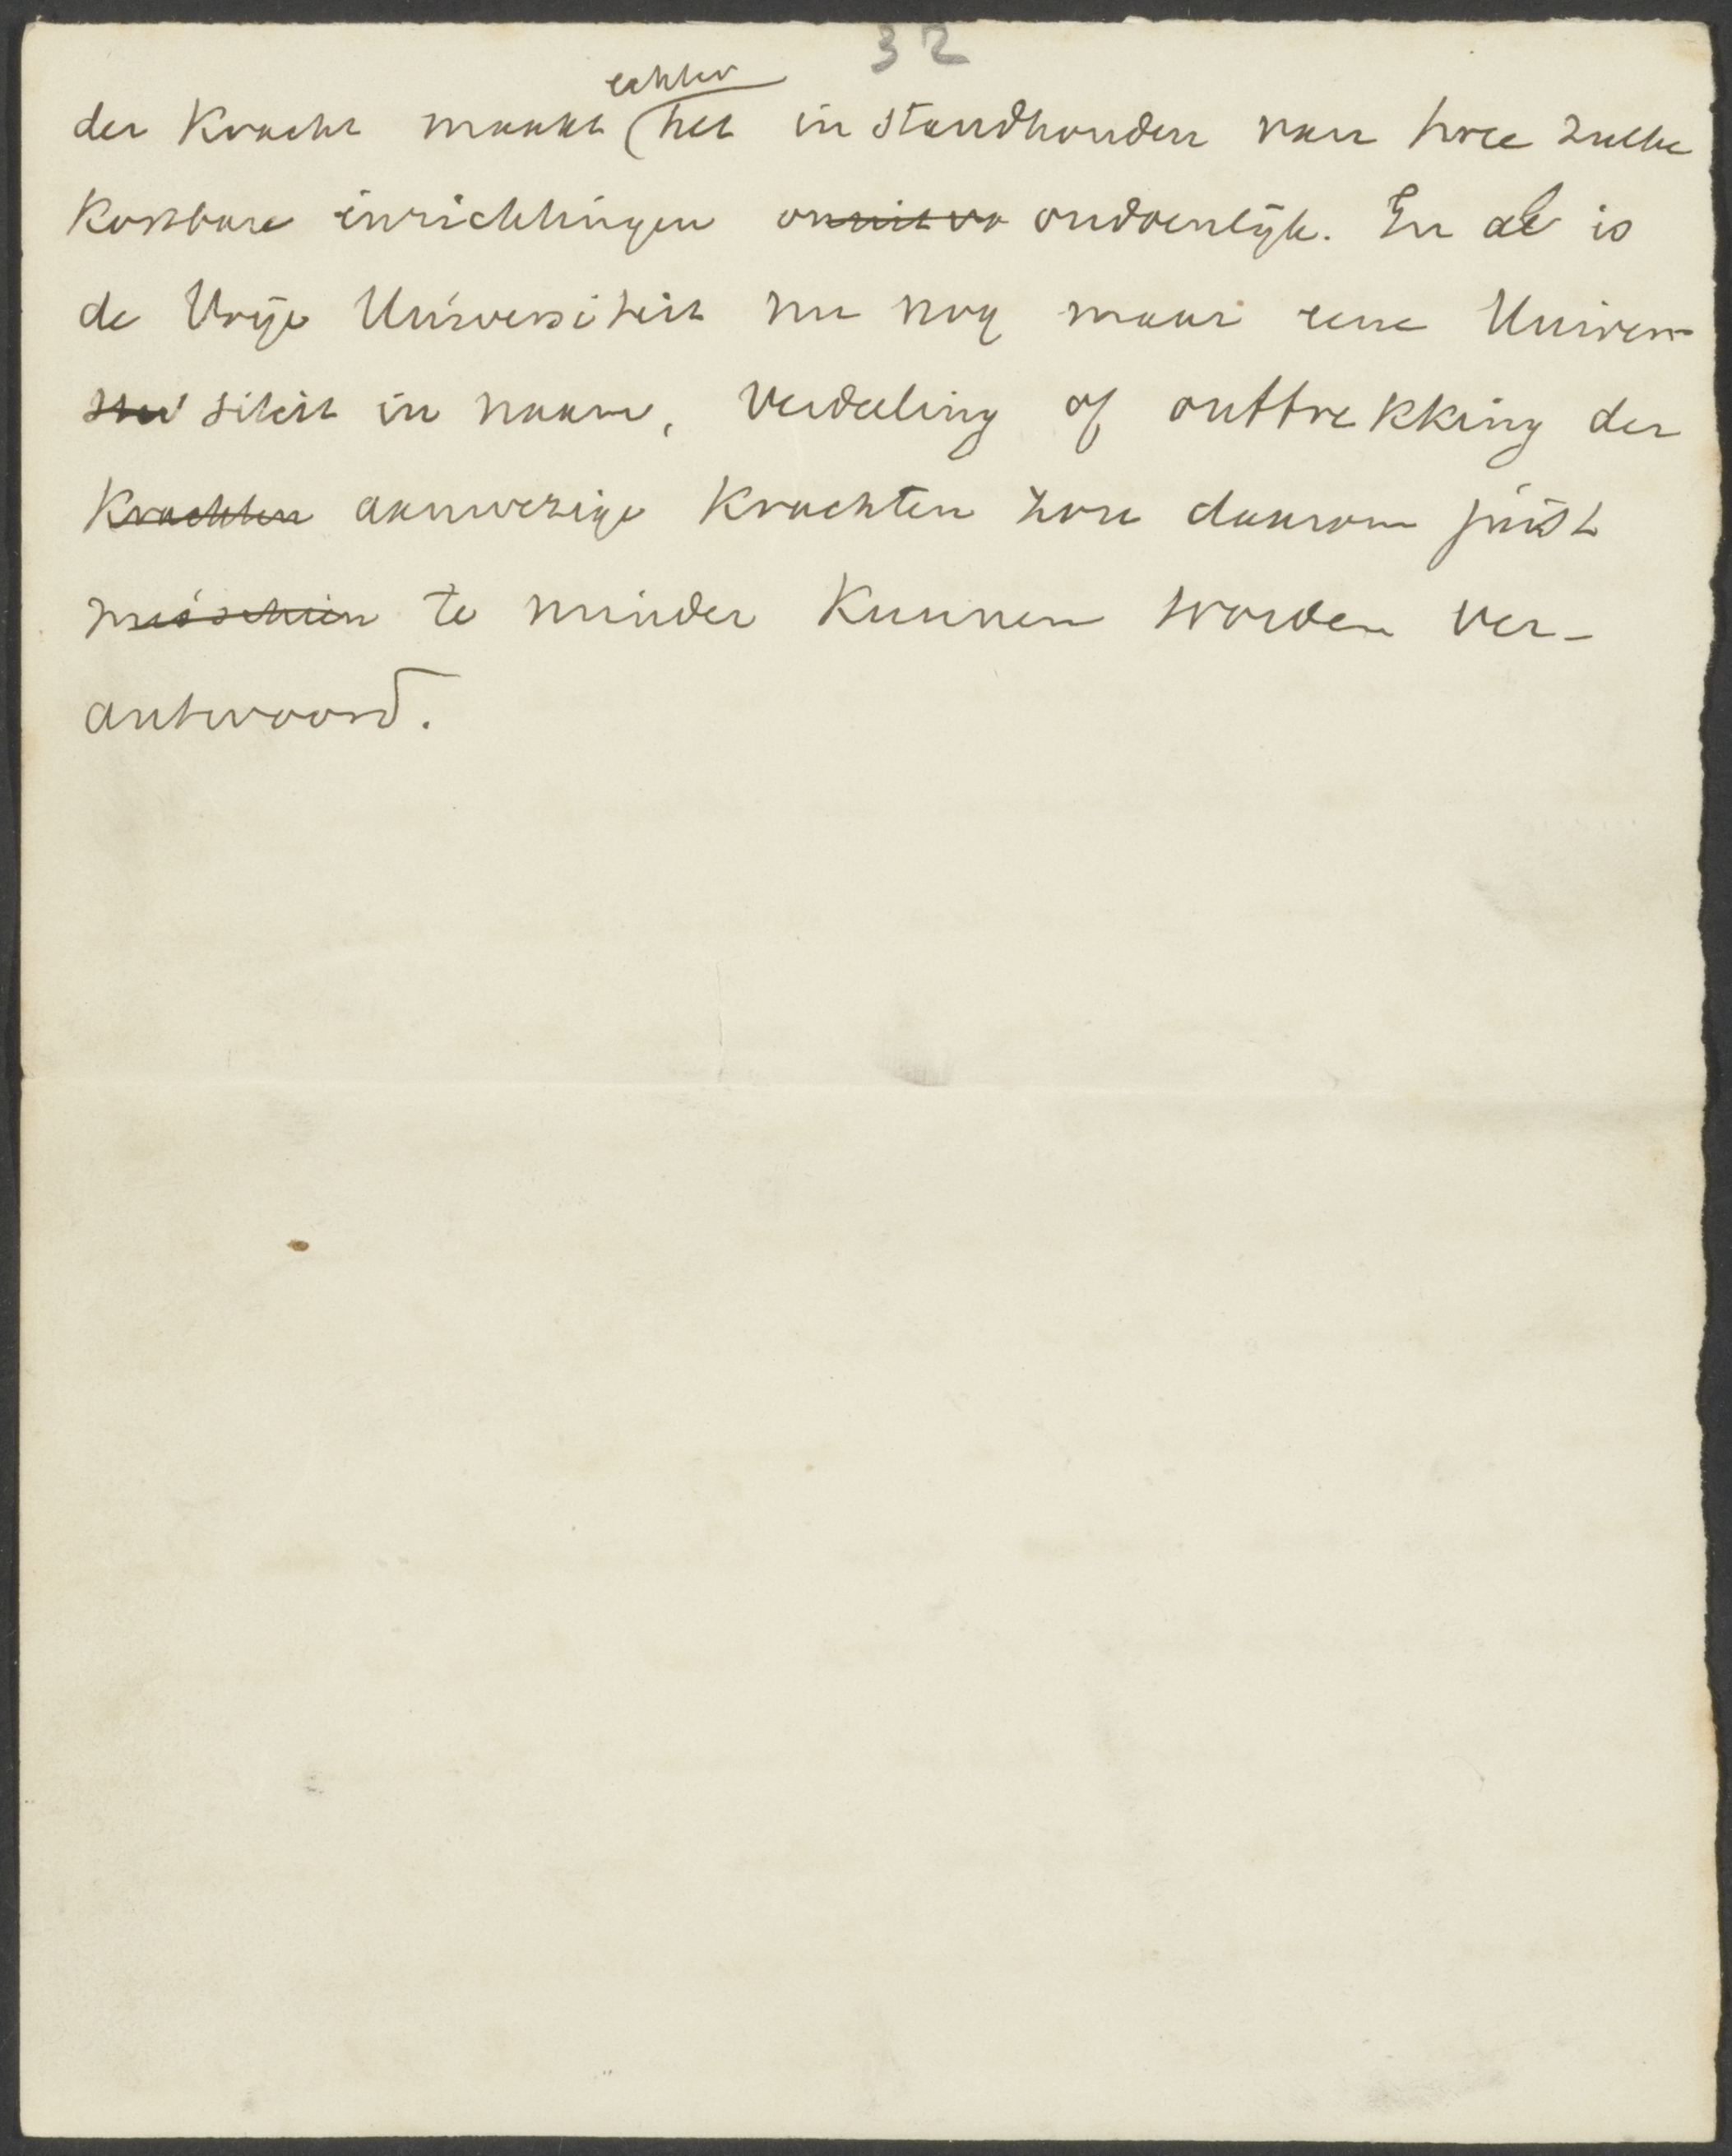 32
echter
der Kracht maakt het instandhouden van twee zulke
Kostbare inrichtingen ondoenlijk. En al is
de Vrije Universiteit nu nog maar eene Univer-
siteit in naam, verdeeling of onttrekking der
Krachten aanwezige Krachten zou daarom juist
misschien te minder Kunnen worden ver-
antwoord.